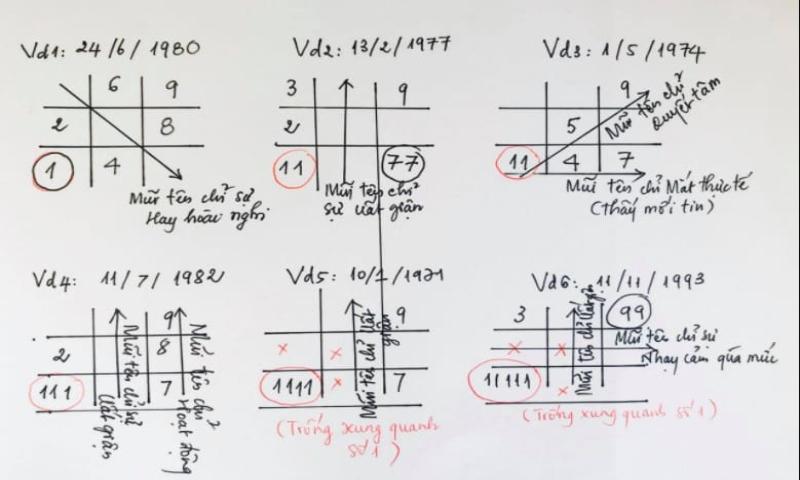 Vd1: 24/6/1980
6 9
2 8
1 4
Mũi tên chỉ sự
Hay hoài nghi
Vd2: 13/2/1977
3 9
2
11 77
Mũi tên chỉ
sự uất giận
Vd3: 1/5/1974
9
5
11 4 7
Mũi tên chỉ
quyết tâm
Mũi tên chỉ Mất thực tế
(thấy mới tin)
Vd4: 11/7/1982
9
2 8
111 7
Mũi tên chỉ sự
uất giận
Mũi tên chỉ
Hoạt động
Vd5: 10/1/1971
9
x x
1111 x 7
Mũi tên chỉ uất
giận
(Trống xung quanh
số 1)
Vd6: 11/11/1993
3 99
x x
11111 x
Mũi tên chỉ uất giận
Mũi tên chỉ sự
Nhạy cảm quá mức
(Trống xung quanh số 1)